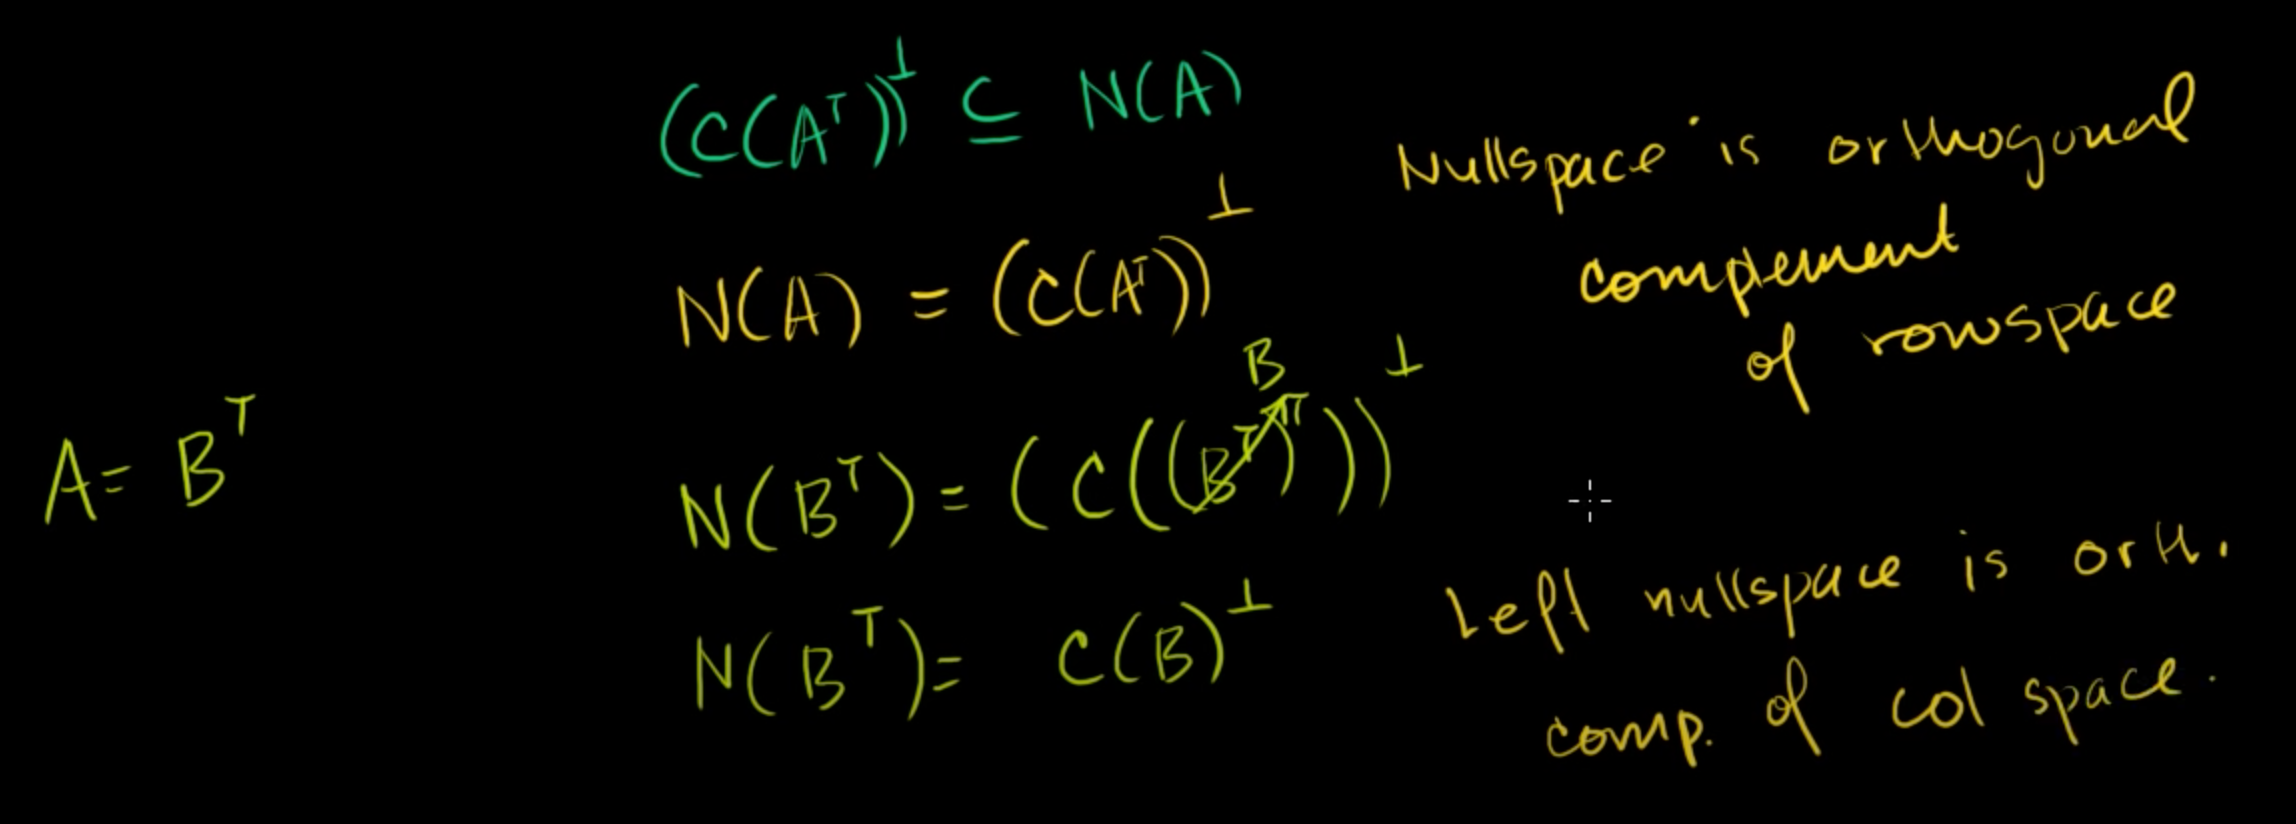 (C(Aᵀ))^⊥ ⊆ N(A)
Nullspace is orthogonal
complement
of rowspace
N(A) = (C(Aᵀ))^⊥
A = Bᵀ
B
N(Bᵀ) = (C((Bᵀ)ᵀ))^⊥
N(Bᵀ) = C(B)^⊥
Left nullspace is orth.
comp. of col space.